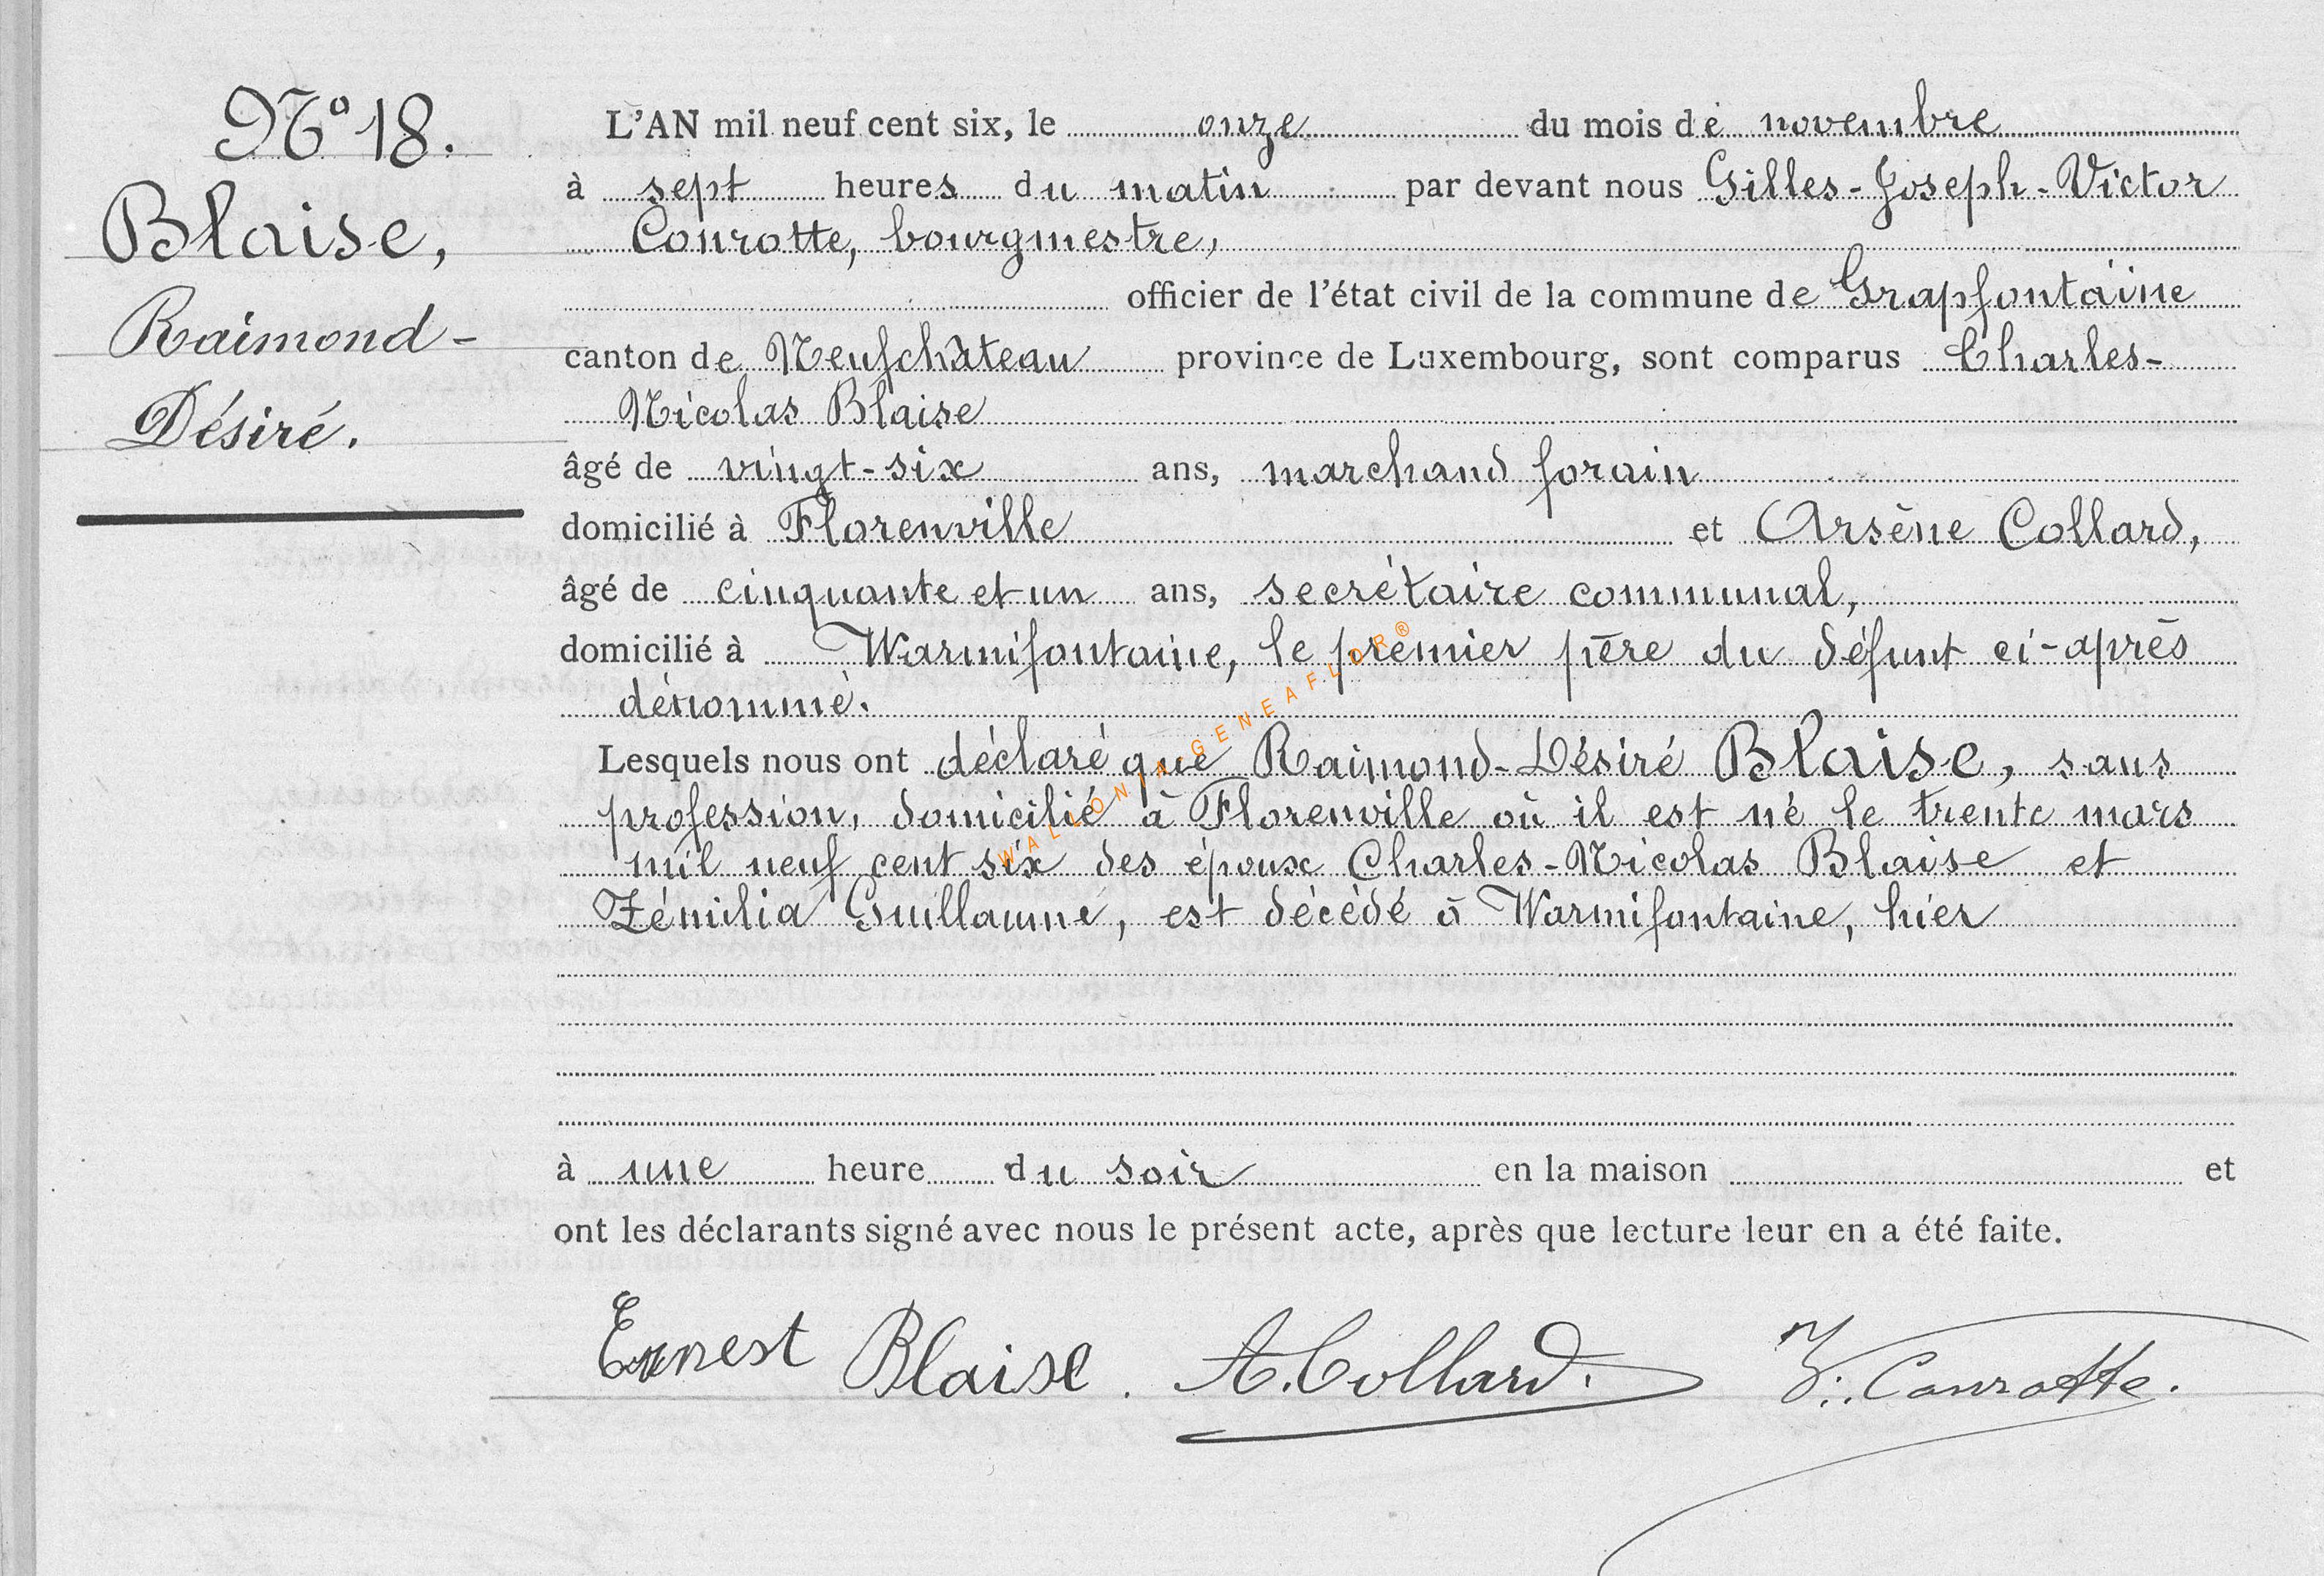 N° 18.
Blaise,
Raimond-
Désiré.
L'AN mil neuf cent six, le onze du mois de novembre
à sept heures du matin par devant nous Gilles-Joseph-Victor
Conrotte, bourgmestre,
officier de l'état civil de la commune de Grapfontaine
canton de Neufchâteau province de Luxembourg, sont comparus Charles-
Nicolas Blaise
âgé de vingt-six ans, marchand forain
domicilié à Florenville et Arsène Collard,
âgé de cinquante et un ans, secrétaire communal,
domicilié à Warmifontaine, le premier père du défunt ci-après
dénommé.
Lesquels nous ont déclaré que Raimond-Désiré Blaise, sans
profession, domicilié à Florenville où il est né le trente mars
mil neuf cent six des époux Charles-Nicolas Blaise et
Zémilia Guillaume, est décédé à Warmifontaine, hier
à une heure du soir en la maison et
ont les déclarants signé avec nous le présent acte, après que lecture leur en a été faite.
Ernest Blaise. A. Collard. V. Conrotte.
WALLONIA-GENEAFLOR®